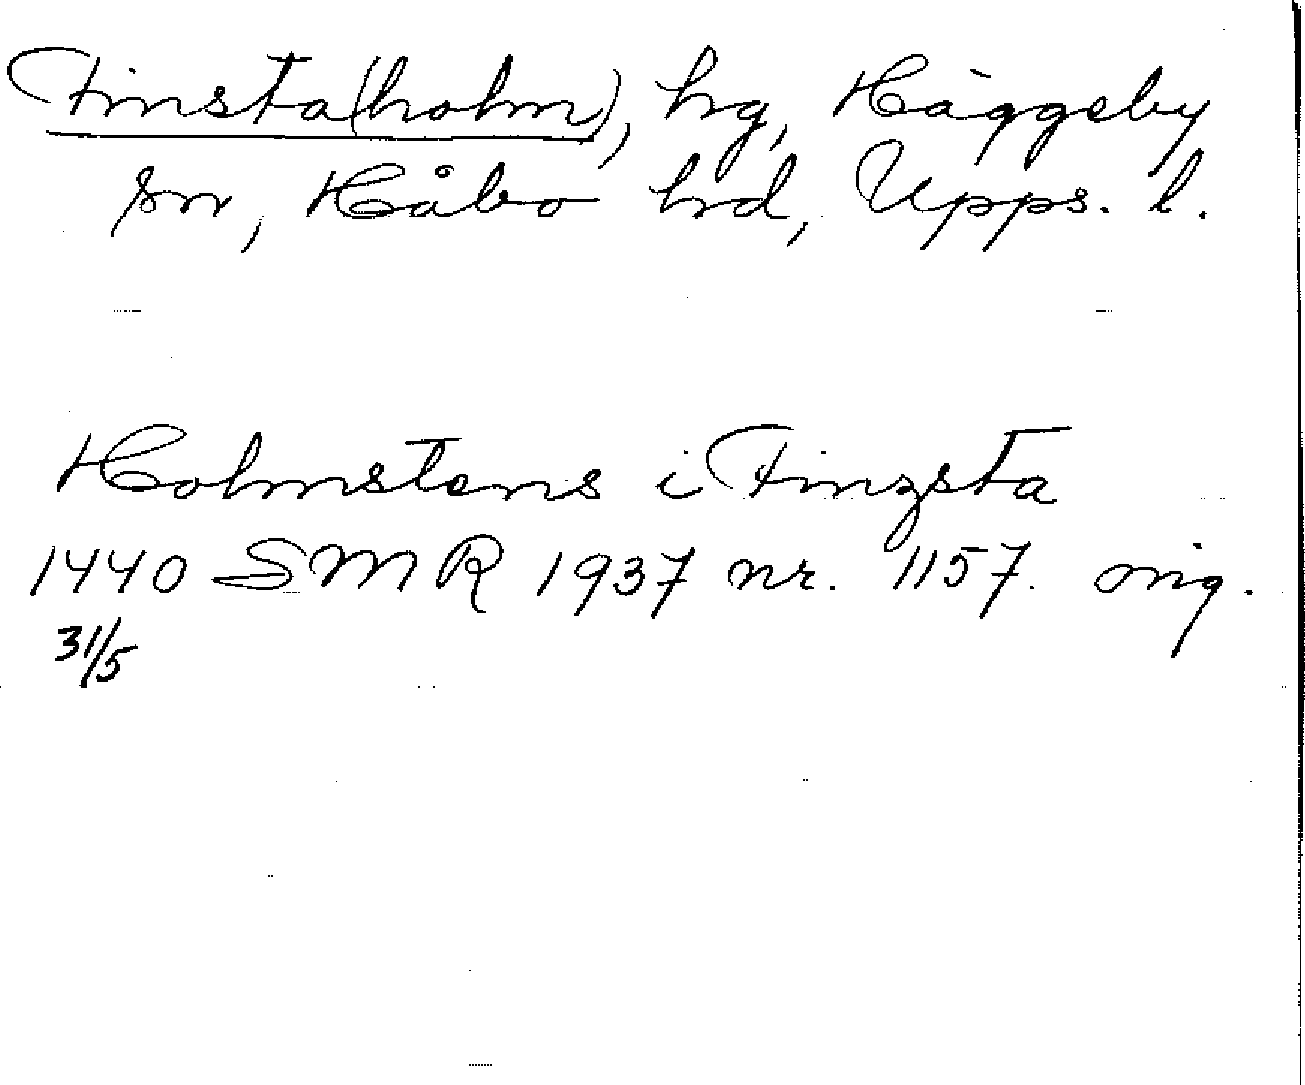 Finsta(holm), hg, Häggeby
sn, Håbo hd, Upps. l.
Holmstens i Finzsta
1440 SMR 1937 nr. 1157. orig.
31/5